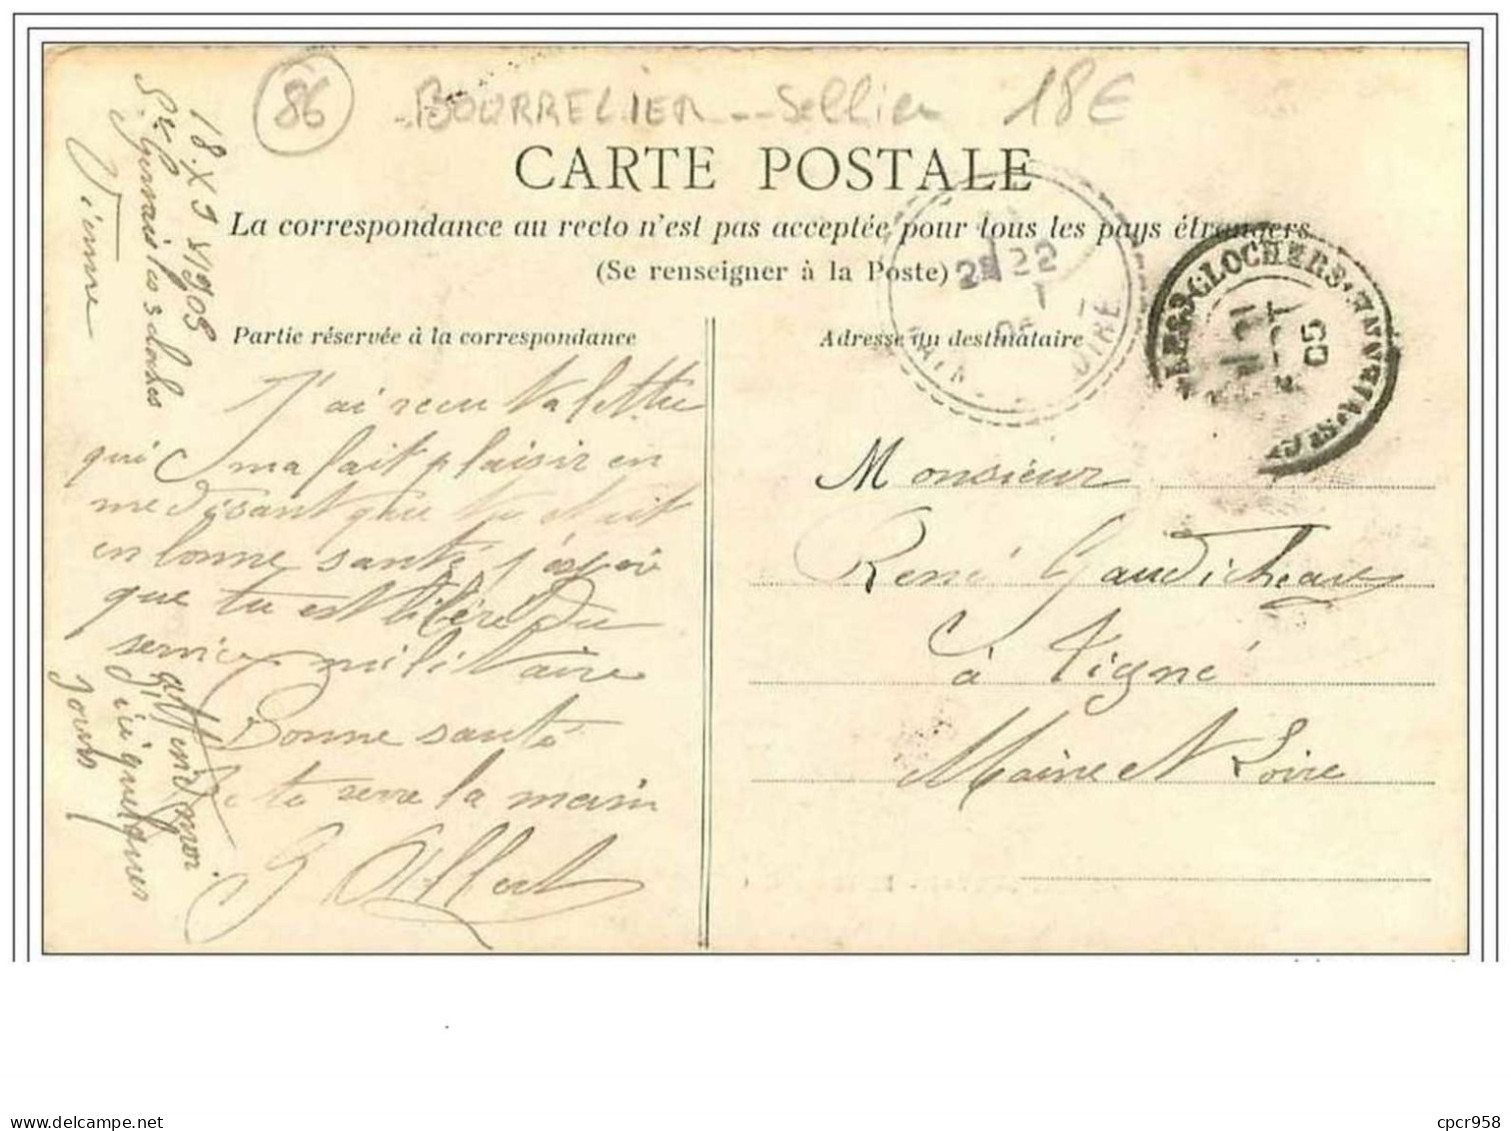 86
BOURRELIER -- Sellier 18€
CARTE POSTALE
La correspondance au recto n'est pas acceptée pour tous les pays étrangers
(Se renseigner à la Poste)
Partie réservée à la correspondance
Adresse du destinataire
St Gervais les 3 clochers
Vienne
J'ai recu ta lettre
qui ma fait plaisir en
me disant que tu etait
en bonne santé, j'espère
que tu est libéré du
service militaire
Bonne santé
te serre la main
attend moi
ici quelques
jours
Monsieur
René Gaudicheau
à Tigné
Maine et Loire
22
OIRE
LES 3 CLOCHERS
05
cpcr958